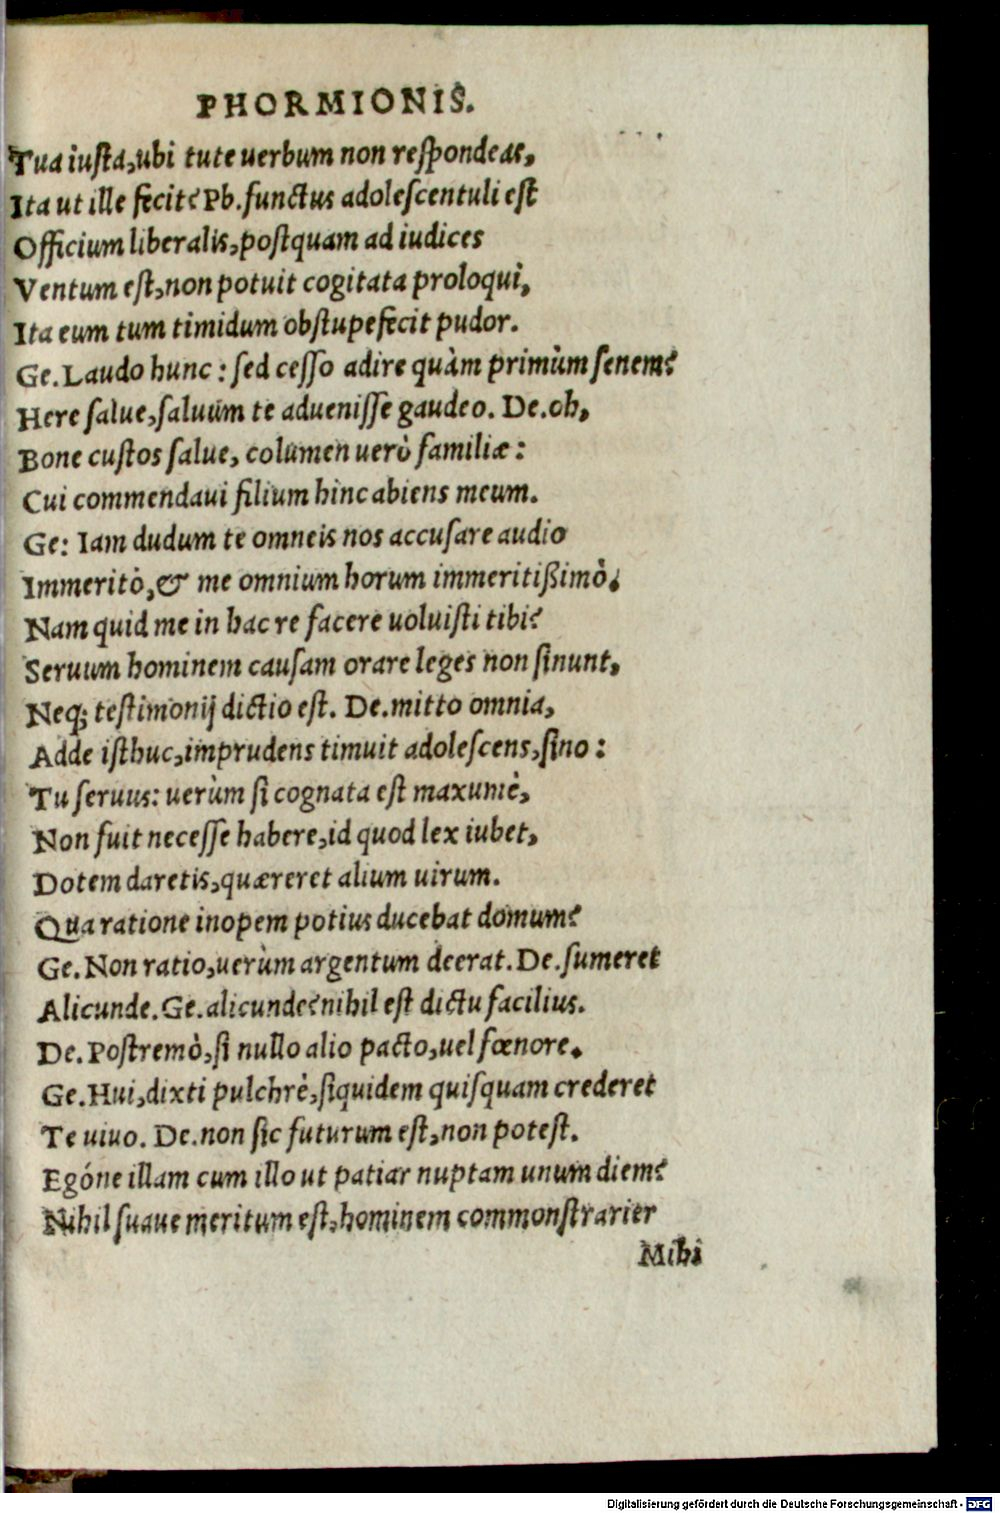 PHORMIONIS.
Tua iusta, ubi tute uerbum non respondeas,
Ita ut ille fecit? Ph. functus adolescentuli est
Officium liberalis, postquam ad iudices
Ventum est, non potuit cogitata proloqui,
Ita eum tum timidum obstupefecit pudor.
Ge. Laudo hunc: sed cesso adire quàm primùm senem?
Here salue, saluum te aduenisse gaudeo. De. oh,
Bone custos salue, columen uerò familiæ:
Cui commendaui filium hinc abiens meum.
Ge: Iam dudum te omneis nos accusare audio
Immeritò, & me omnium horum immeritißimò.
Nam quid me in hac re facere uoluisti tibi?
Seruum hominem causam orare leges non sinunt,
Neq; testimonij dictio est. De. mitto omnia,
Adde isthuc, imprudens timuit adolescens, sino:
Tu seruus: uerùm si cognata est maxumè,
Non fuit necesse habere, id quod lex iubet,
Dotem daretis, quæreret alium uirum.
Qua ratione inopem potius ducebat domum?
Ge. Non ratio, uerùm argentum deerat. De. sumeret
Alicunde. Ge. alicunde? nihil est dictu facilius.
De. Postremò, si nullo alio pacto, uel fœnore.
Ge. Hui, dixti pulchrè, siquidem quisquam crederet
Te uiuo. De. non sic futurum est, non potest.
Egóne illam cum illo ut patiar nuptam unum diem?
Nihil suaue meritum est, hominem commonstrarier
Mihi
Digitalisierung gefördert durch die Deutsche Forschungsgemeinschaft - DFG